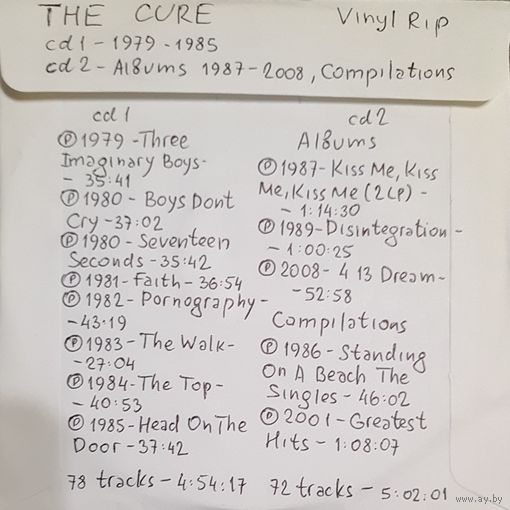 THE CURE Vinyl Rip
cd1 - 1979 - 1985
cd2 - Albums 1987-2008, Compilations
cd1
Ⓟ1979 - Three
Imaginary Boys -
- 35:41
Ⓟ1980 - Boys Dont
Cry - 37:02
Ⓟ1980 - Seventeen
Seconds - 35:42
Ⓟ1981 - Faith - 36:54
Ⓟ1982 - Pornography -
- 43:19
Ⓟ1983 - The Walk -
- 27:04
Ⓟ1984 - The Top -
- 40:53
Ⓟ1985 - Head On The
Door - 37:42
78 tracks - 4:54:17
cd2
Albums
Ⓟ1987 - Kiss Me, Kiss
Me, Kiss Me (2LP) -
- 1:14:30
Ⓟ1989 - Disintegration -
- 1:00:25
Ⓟ2008 - 4 13 Dream -
- 52:58
Compilations
Ⓟ1986 - Standing
On A Beach The
Singles - 46:02
Ⓟ2001 - Greatest
Hits - 1:08:07
72 tracks - 5:02:01
www.ay.by